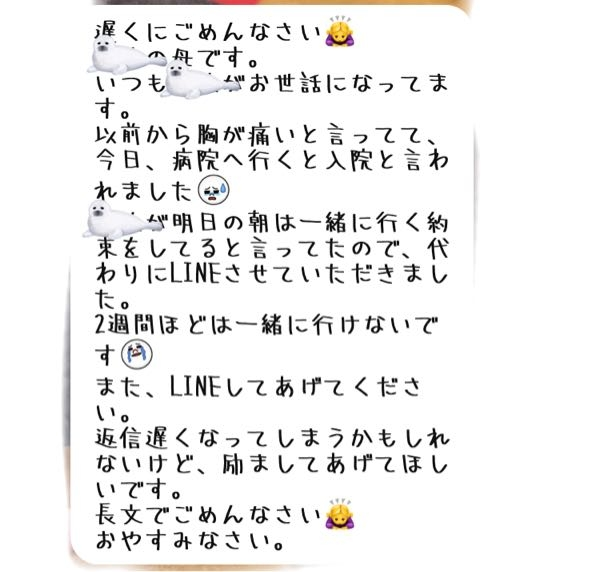 遅くにごめんなさい🙇‍♀️
の母です。
いつも がお世話になってま
す。
以前から胸が痛いと言ってて、
今日、病院へ行くと入院と言わ
れました
が明日の朝は一緒に行く約
束をしてると言ってたので、代
わりにLINEさせていただきまし
た。
2週間ほどは一緒に行けないで
す
また、LINEしてあげてくださ
い。
返信遅くなってしまうかもしれ
ないけど、励ましてあげてほし
いです。
長文でごめんなさい🙇‍♀️
おやすみなさい。